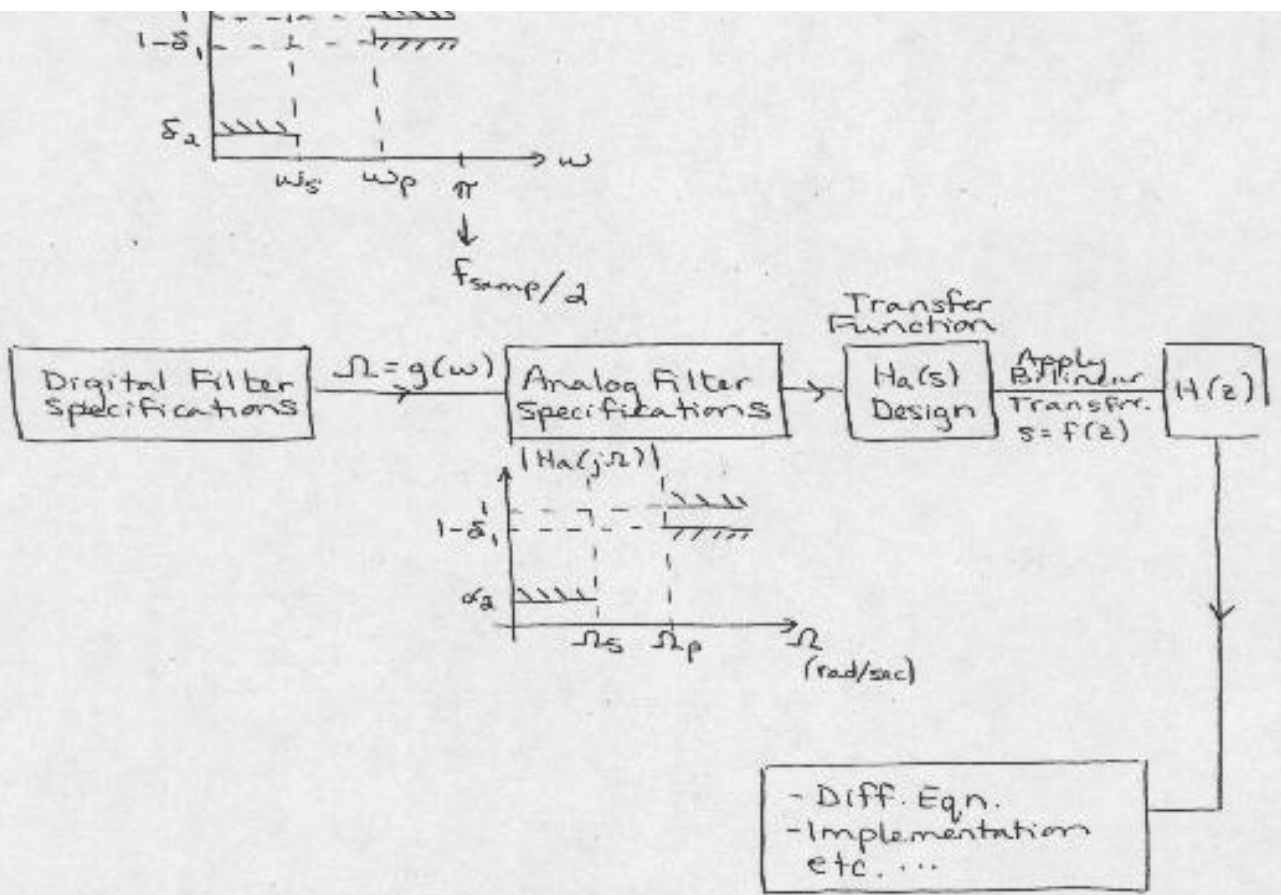 1-δ₁
δ₂
ω_s ω_p π → ω
f_samp/2
Digital Filter
Specifications
Ω = g(ω)
Analog Filter
Specifications
Transfer
Function
Ha(s)
Design
Apply
Bilinear
Transfer.
s = f(z)
H(z)
|Ha(jΩ)|
1
1-δ₁
δ₂
Ω_s Ω_p Ω
(rad/sec)
- Diff. Eqn.
- Implementation
etc. ...